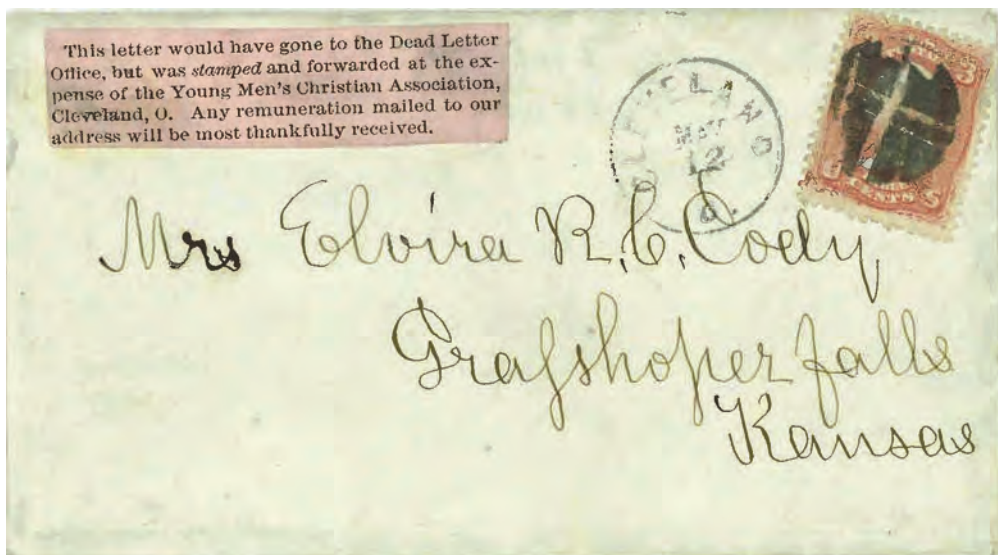 This letter would have gone to the Dead Letter
Office, but was stamped and forwarded at the ex-
pense of the Young Men's Christian Association,
Cleveland, O. Any remuneration mailed to our
address will be most thankfully received.
CLEVELAND
MAY
12
O.
CENTS
Mrs Elvira R. C. Cody
Graſshoper falls
Kansas